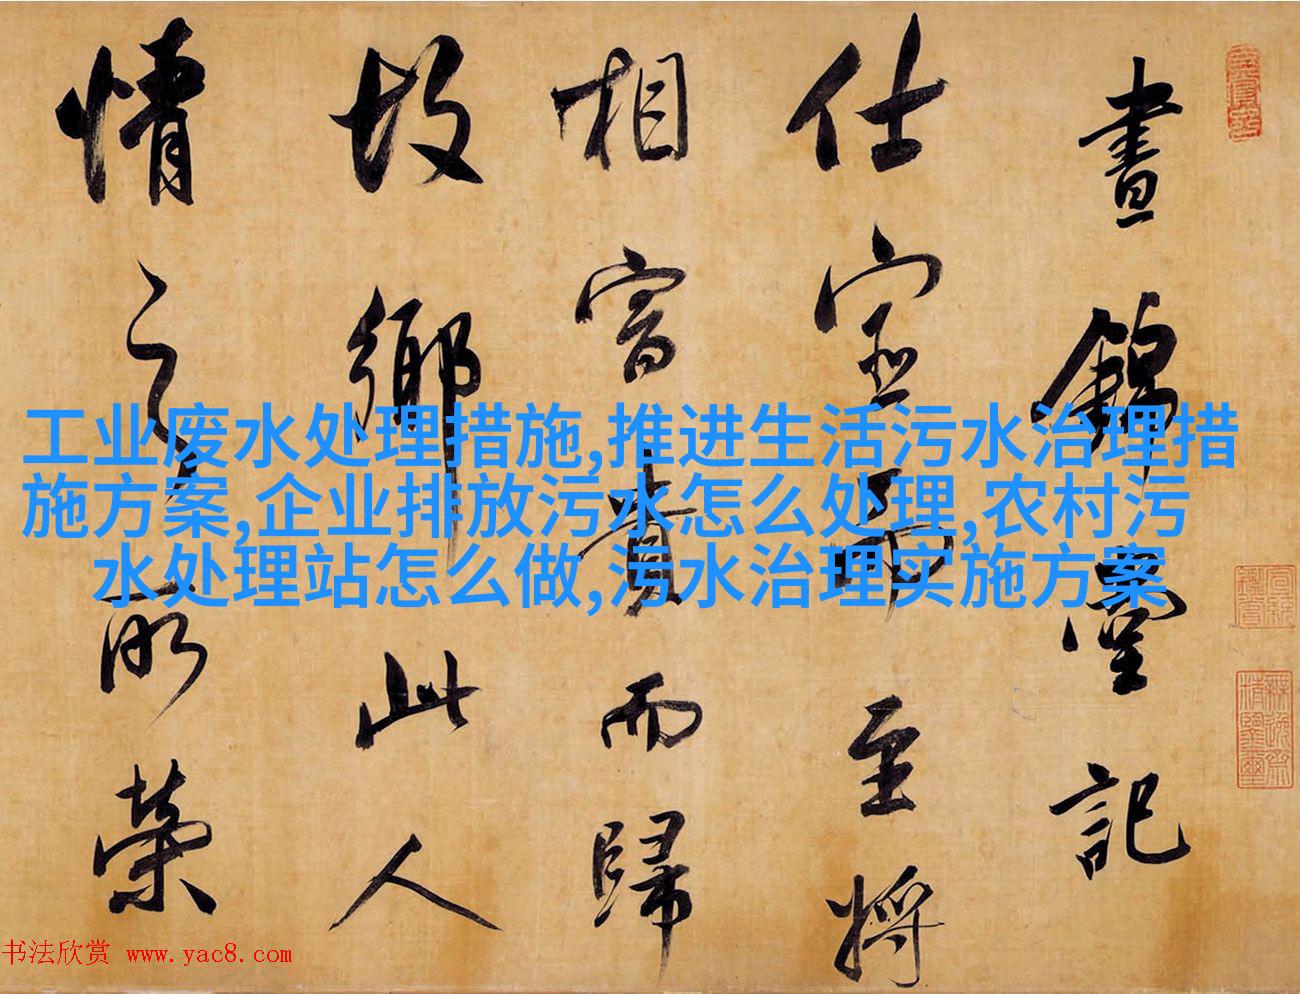 晝錦堂記
仕宦而至將
相富貴而歸
故鄉此人
情之所榮
工业废水处理措施,推进生活污水治理措
施方案,企业排放污水怎么处理,农村污
水处理站怎么做,污水治理实施方案
书法欣赏 www.yac8.com